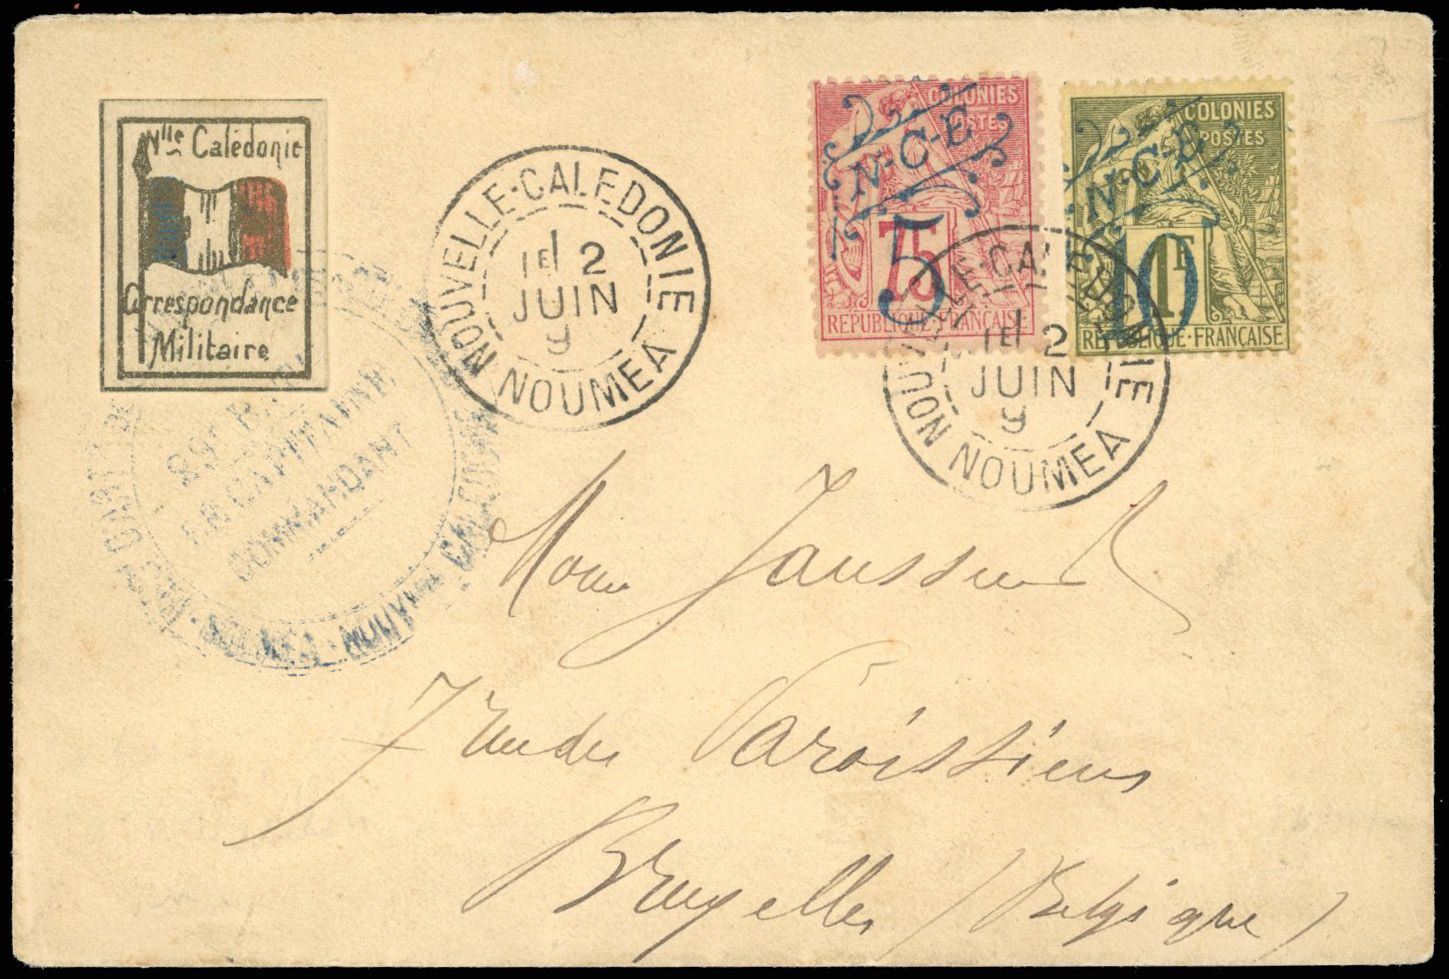 Nlle Calédonie
Correspondance
Militaire
NOUVELLE-CALEDONIE
1E/ 2
JUIN
9
NOUMEA
COLONIES
POSTES
N-C-E
5
75
REPUBLIQUE FRANÇAISE
COLONIES
POSTES
N-C-E
10
1F
REPUBLIQUE FRANÇAISE
NOUVELLE-CALEDONIE
1E/ 2
JUIN
9
NOUMEA
LE CAPITAINE
COMMANDANT
NOUMEA - NOUVELLE CALEDONIE
7 rue des Paroissiens
Bruxelles (Belgique)